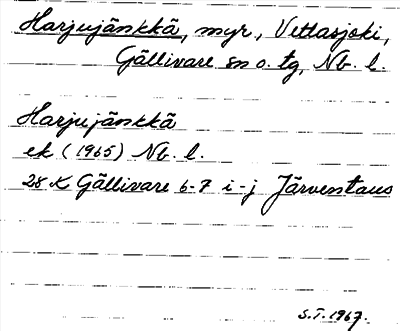 Harjujänkkä, myr, Vettasjoki,
Gällivare sn o. tg, Nb. l.
Harjujänkkä
ek (1965) Nb. l.
28 K Gällivare 6-7 i-j Järventaus
S.T. 1967.